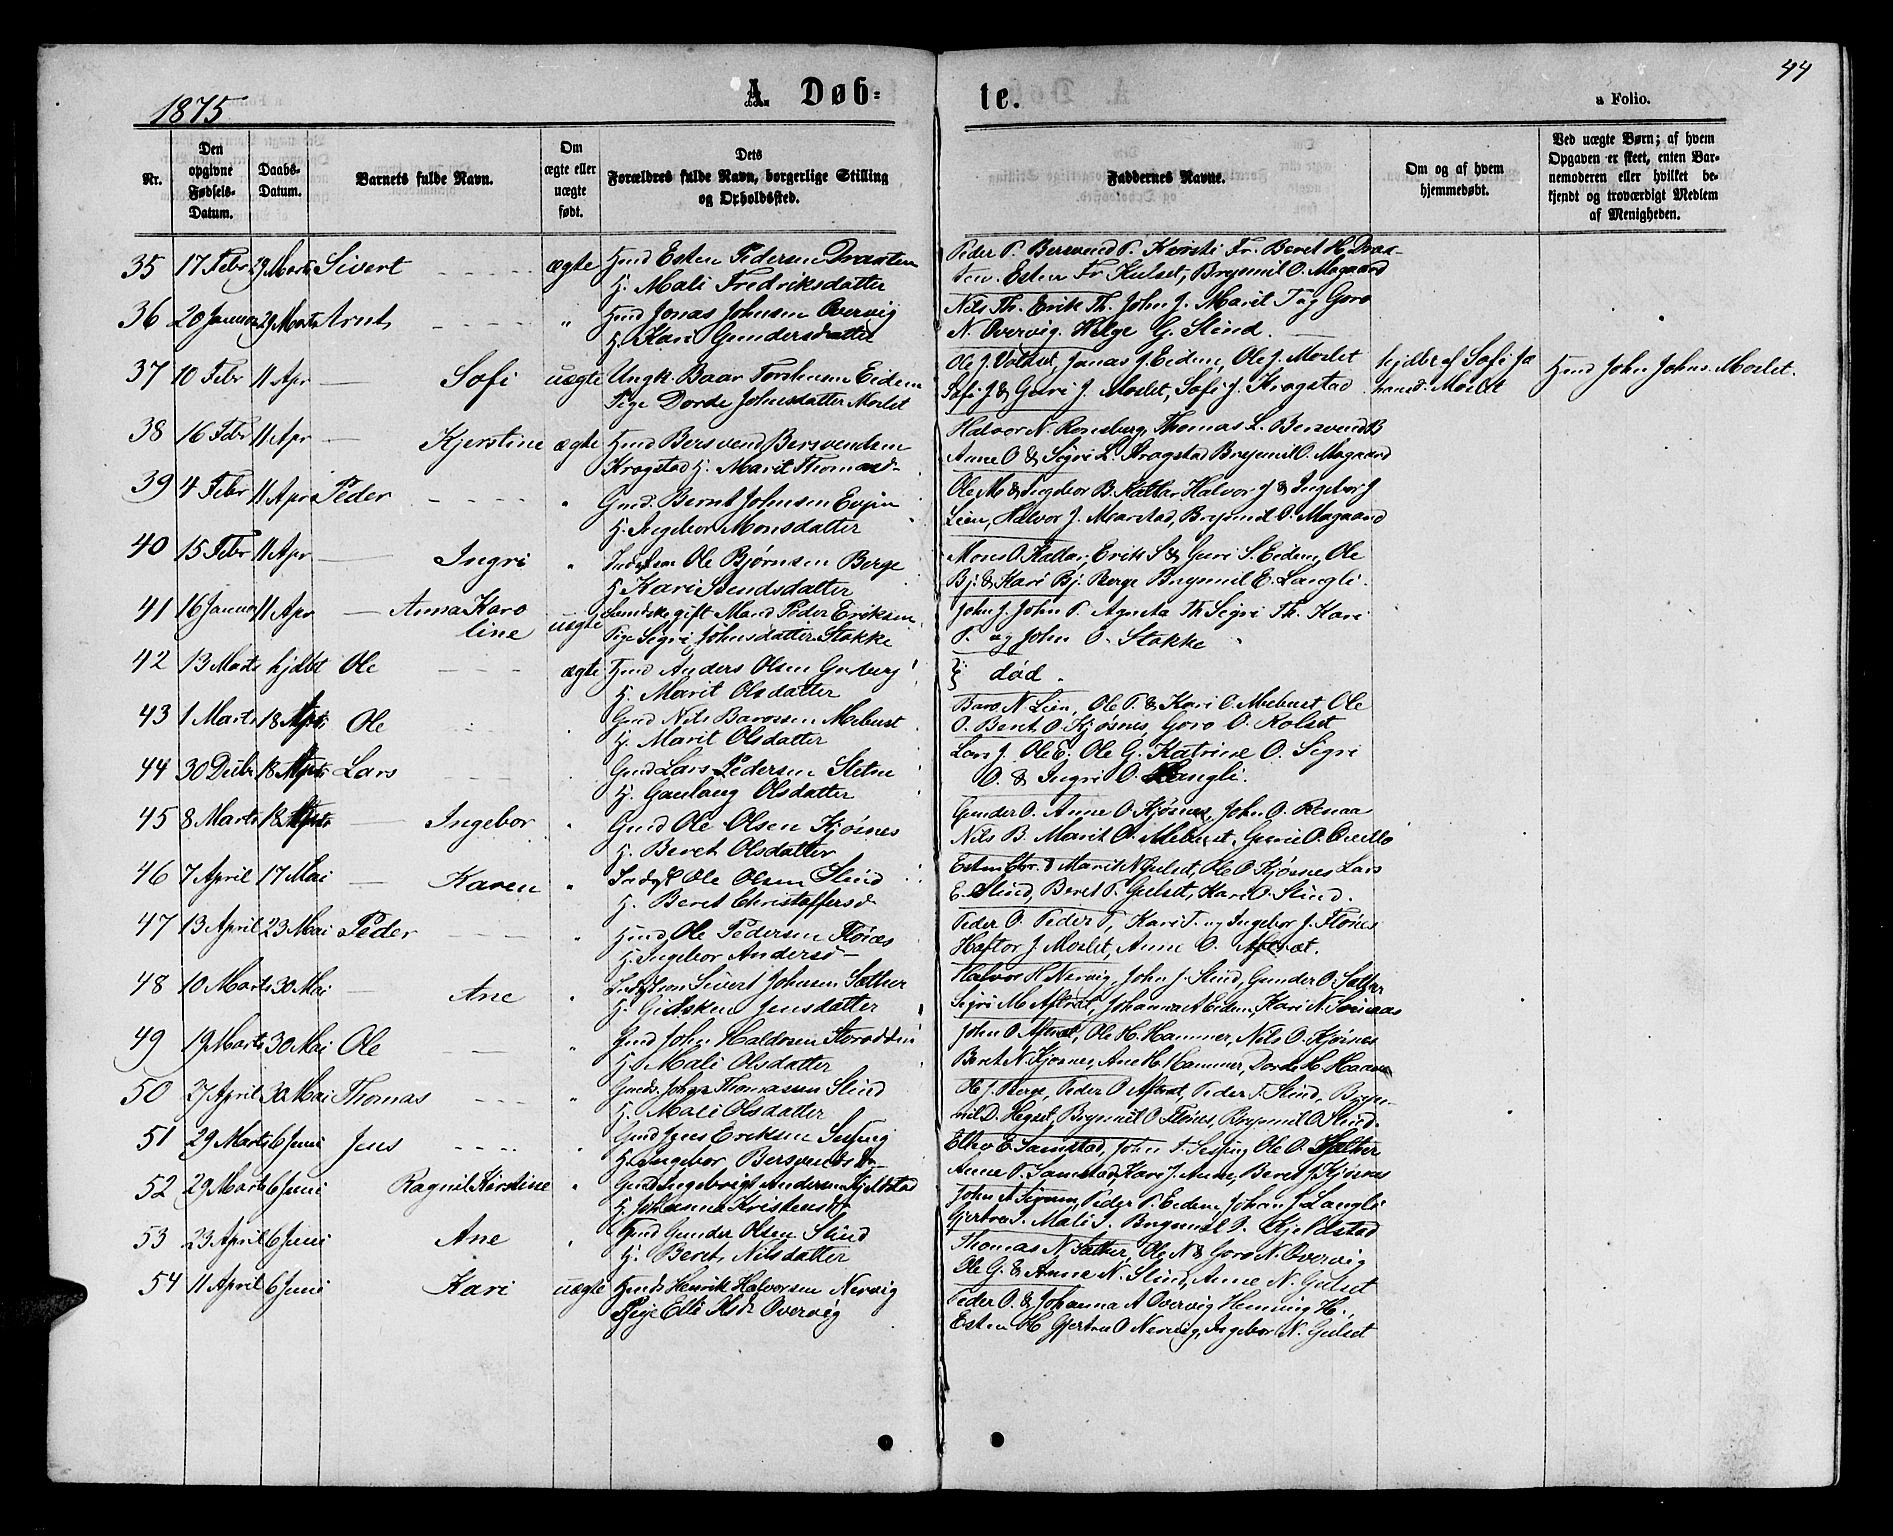 44
1875
A. Døb-
te.
a Folio.
Nr.
Den opgivne Fødsels-Datum.
Daabs-Datum.
Barnets fulde Navn.
Om ægte eller uægte født.
Dets Forældres fulde Navn, borgerlige Stilling og Opholdssted.
Faddernes Navne.
Om og af hvem hjemmedøbt.
Ved uægte Børn; af hvem Opgaven er skeet, enten Barnemoderen eller hvilket bekjendt og troværdigt Medlem af Menigheden.
35 17 Febr 29 Marts Sivert ægte Hmd Esten Pedersen Draxten
H. Mali Fredriksdatter
Peder P. Bersvend P. Kirsti Fr. Beret H. Drax-
ten. Esten Fr Kulset, Brynmil O. Mogaard
36 20 Januar 29 Marts Arnt " Hmd Jonas Johnsen Overvig
H. Kari Gundersdatter
Nils Th. Erik Th. John J. Marit T og Goro
N. Overvig. Helge G. Slind.
37 10 Febr 11 Apr Sofi uægte Ungk. Baar Torstensen Eidem
Pige Dorde Johnsdatter Moslet
Ole J. Volset, Jonas J. Eidem, Ole J. Moslet
Sofi J & Guri J. Moslet, Sofi J. Kragstad
hjdbt af Sofi Jo
hansd. Moslet
Hmd John Johns. Moslet.
38 16 Febr 11 Apr Kjerstine ægte Hmd Bersvend Bersvendsen
Kragstad H. Marit Thomasd
Halvor N. Ronsberg, Thomas L. Bersvend B
Anne O & Sigri L. Kragstad Brynmil O. Mogaard
39 4 Febr 11 Apr Peder " Gmd. Bernt Johnsen Evjen
H. Ingebor Monsdatter
Ole M & Ingebor B. Kallar Halvor J & Ingebor J
Lien, Halvor J. Maarstad, Brynmil O. Mogaard
40 15 Febr 11 Apr Ingri " Ole Bjørnsen Berge
H. Kari Bendsdatter
Mons O. Kallar, Erik S & Guri S. Eidem, Ole
Bj. & Kari Bj. Berge Brynmil E. Langli.
41 16 Januar 11 Apr Anna Karo
line uægte Svenske gift Mand Peder Eriksen
Pige Sigri Johnsdatter Stokke
John J. John P. Agneta Th Sigri Th. Kari
P. og John O. Stokke
42 13 Marts hjdbt Ole ægte Hmd Anders Olsen
H. Marit Olsdatter
død.
43 1 Marts 18 Apr Ole Gmd Nils Baroesen Mebust
H. Marit Olsdatter
Baro N Lien, Ole P. & Kari O. Mebust, Ole
O. Beret O. Kjøsnes, Goro O. Rolset
44 30 Decbr 18 Apr Lars Gmd Lars Pedersen Sletne
H. Gunlaug Olsdatter
Lars J. Ole E. Ole G. Katrine O. Sigri
O. & Ingri O. Langli.
45 8 Marts 18 Apr Ingebor " Gmd Ole Olsen Kjøsnes
H. Beret Olsdatter
Gunder O. Anne O Kjøsnes, John O. Renaa
Nils B. Marit O. Mebust, Guri O. Qvello
46 7 April 17 Mai Karen " Ole Olsen Slind
H. Beret Christoffersd
Esten Chr. & Marit N Gulset, Ole O. Kjøsnes Lars
E. Slind, Beret P. Gulset, Kari O. Slind.
47 13 April 23 Mai Peder " Hmd Ole Pedersen Flønes
H. Ingebor Andersd
Peder O. Peder P, Kari T. og Ingebor J. Flønes
Haftor J Moslet, Anne O. Aftret.
48 10 Marts 30 Mai Ane " Sivert Johnsen Sæther
H. Gidsken Jensdatter
Halvor H Nervig, John J. Slind, Gunder O. Sæther
Sigri M. Aftret, Johanna A Eidem, Kari N.
49 19 Marts 30 Mai Ole " Gmd John Haldosen
H. Mali Olsdatter
John O Aftret, Ole H. Hammer, Nils O. Kjøsnes
Beret N. Kjøsnes, Ane H. Hammer, Dorde H. Hammer
50 27 April 30 Mai Thomas " Gmd. John Thomassen Slind
H. Mali Olsdatter
Ole J. Berge, Peder O Aftret, Peder T. Slind, Bryn-
mil D. Hegset, Brynmil O. Flønes, Brynmil O Slind.
51 29 Marts 6 Juni Jens Gmd Jens Eriksen Sesseng
H. Ingebor Bersvendsdr
E. Samstad, John T. Sesseng Ole O. Sæther
Anne P. Samstad, Kari J. Anne, Beret J. Kjøsnes
52 29 Marts 6 Juni Ragnil Kirstine " Gmd Ingebrigt Andersen Kjelstad
H. Johanna Kristensd
John A, Peder P. Eidem, Johan J. Langli
Gjertru I. Mali I. Brynmil I. Kjelstad
53 23 April 6 Juni Ane " Gmd Gunder Olsen Slind
H. Beret Nilsdatter
Thomas N. Sæther, Ole N & Goro N. Overvig
Ole G. & Anne N. Slind, Anne N. Gulset
54 11 April 6 Juni Kari uægte Hmds. Henrik Halvorsen Nervig
Pige Elli Olsd. Overvig
Peder O. & Johanna A Overvig Henning H.,
Esten H. Gjertru O Nervig, Ingebor N. Gulset